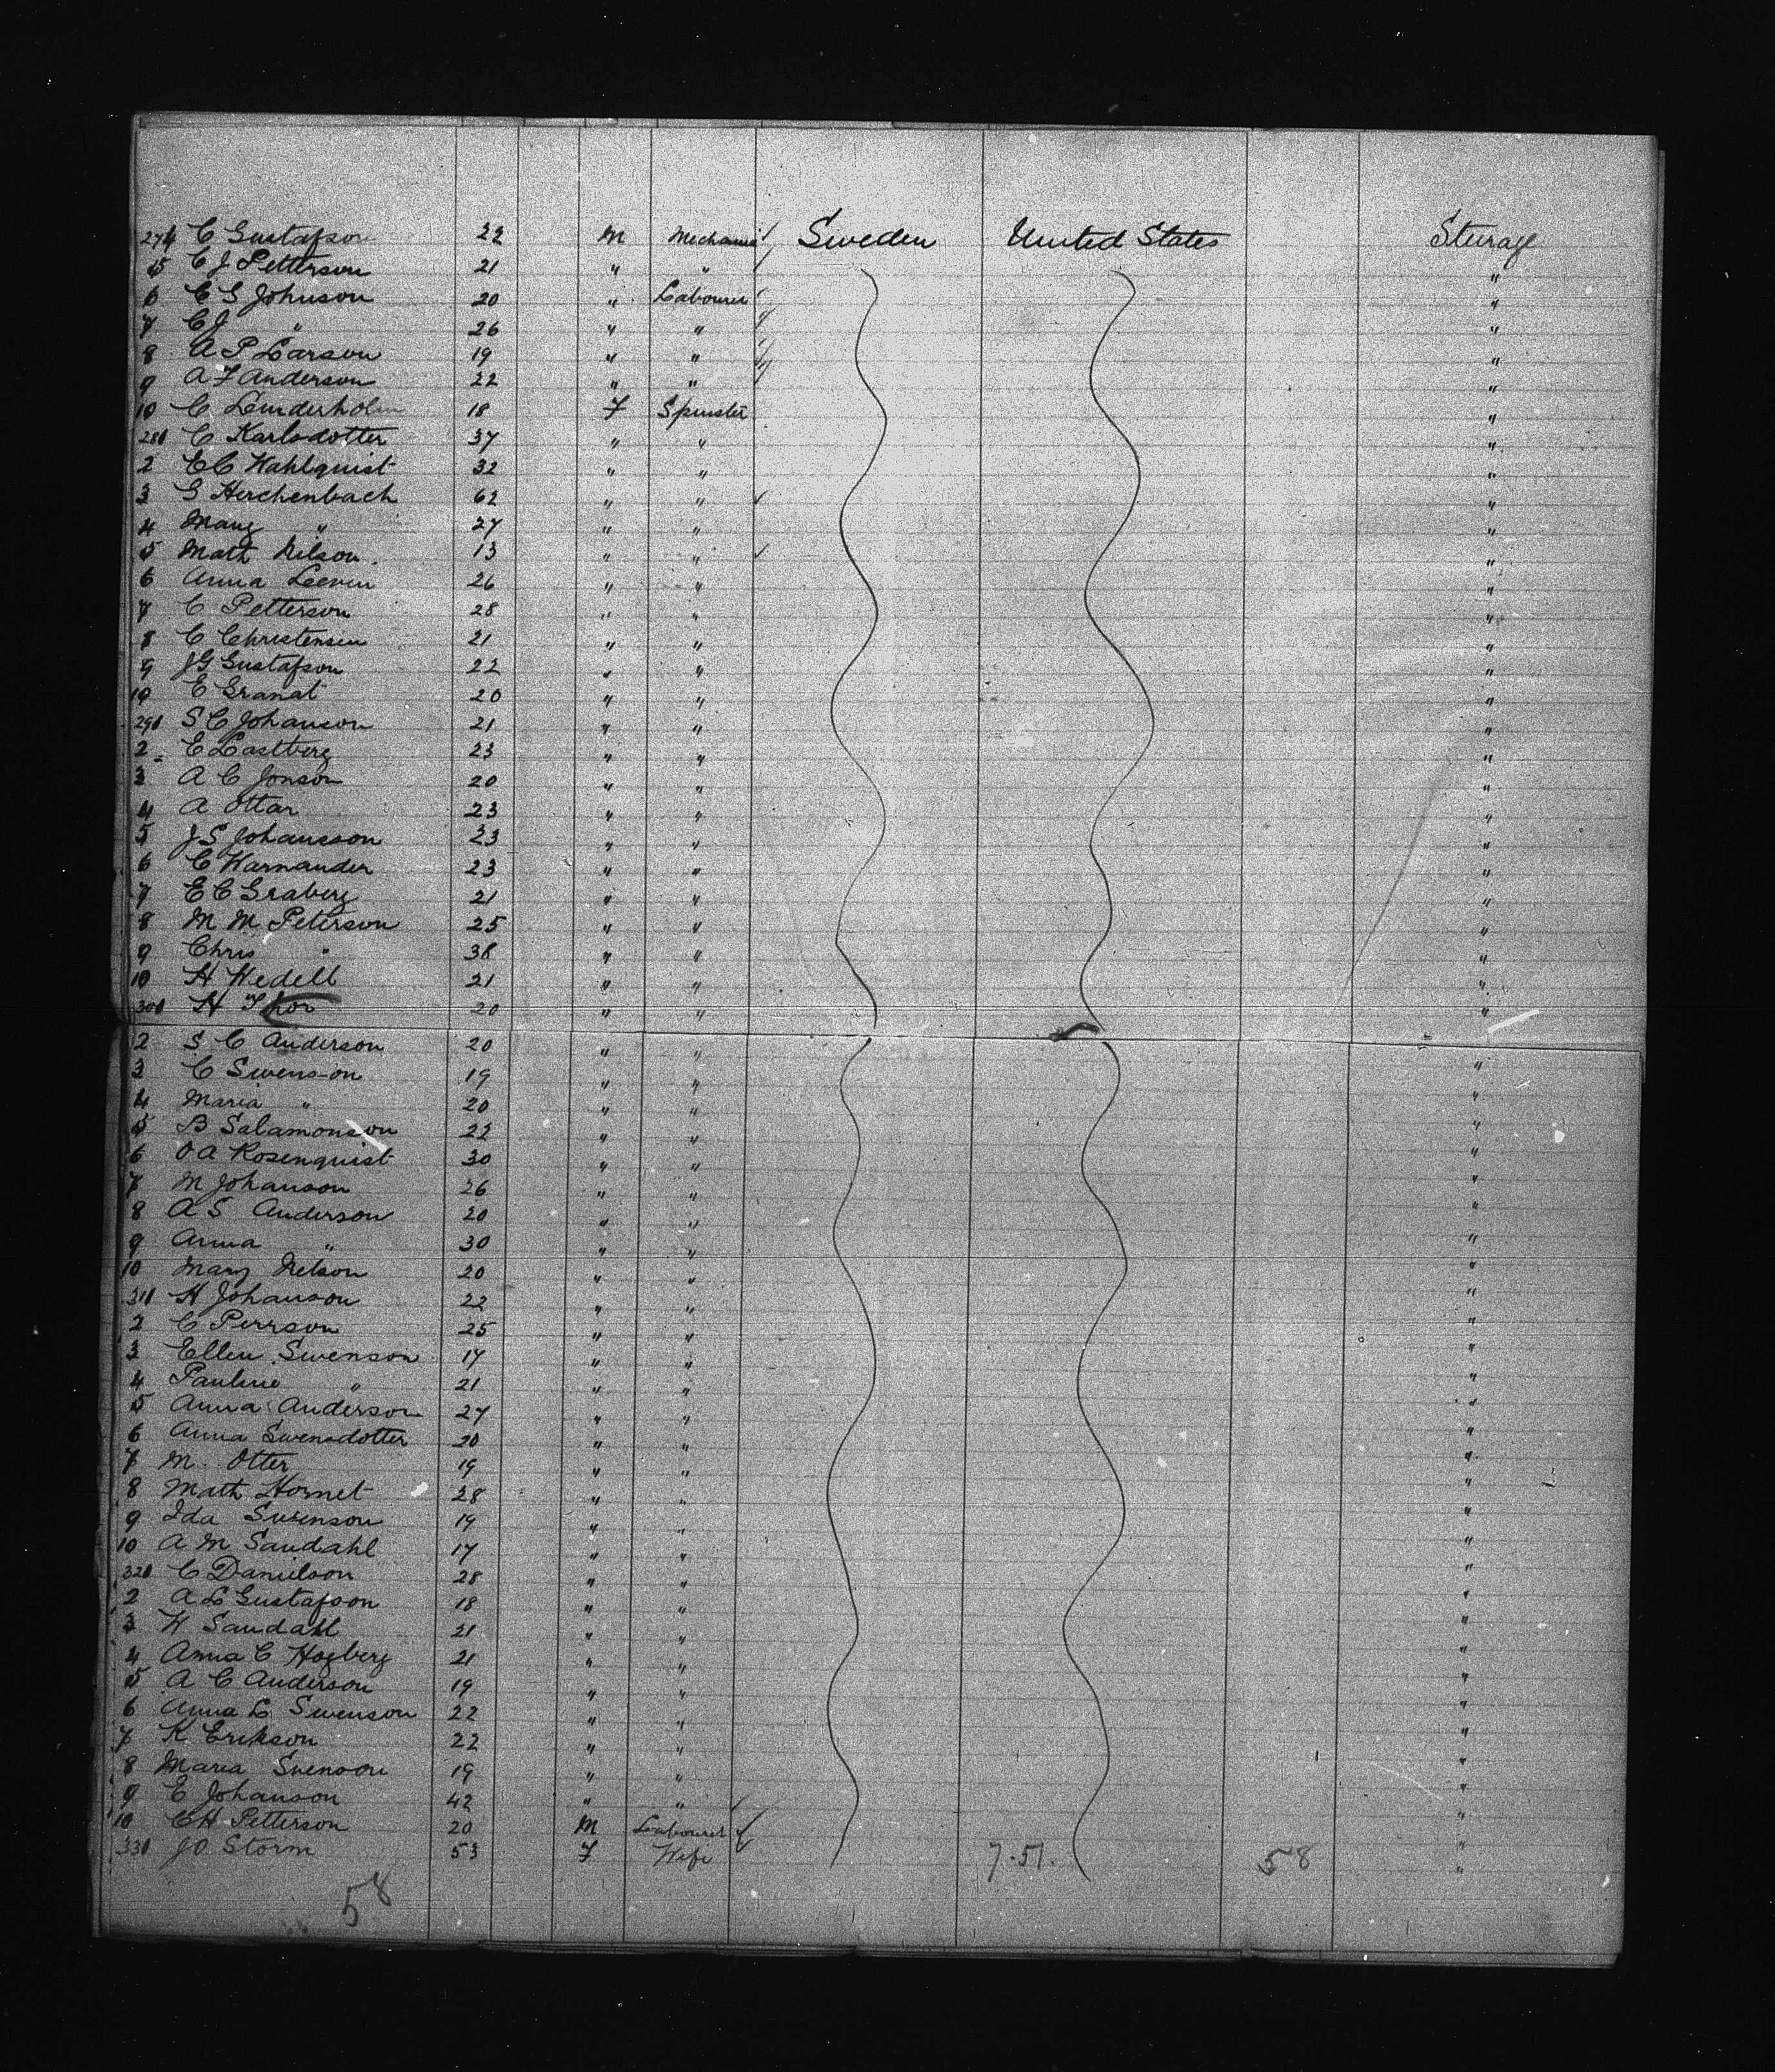 274 C Gustafson 22 M Mechanic Sweden United States Sturage
5 C J Petterson 21 " " "
6 C G Johnson 20 " Labourer "
7 C J " 26 " " "
8 A P Larson 19 " " "
9 A F Anderson 22 " " "
10 C Lunderholm 18 F Spinster "
281 C Karlsdotter 37 " " "
2 E C Wahlquist 32 " " "
3 G Herchenbach 62 " " "
4 Mary " 27 " " "
5 Math Nilson 13 " " "
6 Anna Leeven 26 " " "
7 C Petterson 28 " " "
8 C Christensen 21 " " "
9 J G Gustafson 22 " " "
10 E Granat 20 " " "
291 S C Johanson 21 " " "
2 E Lastberg 23 " " "
3 A C Jonson 20 " " "
4 A Ottar 23 " " "
5 J S Johansson 23 " " "
6 C Warnander 23 " " "
7 E C Graberg 21 " " "
8 M M Peterson 25 " " "
9 Chris " 38 " " "
10 H Wedell 21 " " "
301 H Thor 20 " " "
2 S C Anderson 20 " " "
3 C Swenson 19 " " "
4 Maria " 20 " " "
5 B Salamonson 22 " " "
6 O A Rosenquist 30 " " "
7 M Johanson 26 " " "
8 A S Anderson 20 " " "
9 Anna " 30 " " "
10 Mary Nelson 20 " " "
311 H Johanson 22 " " "
2 C Perrson 25 " " "
3 Ellen Swenson 17 " " "
4 Pauline " 21 " " "
5 Anna Anderson 27 " " "
6 Anna Swensdotter 20 " " "
7 M. Otter 19 " " "
8 Math Hornet 28 " " "
9 Ida Swenson 19 " " "
10 A M Sandahl 17 " " "
321 C Danielson 28 " " "
2 A L Gustafson 18 " " "
3 W Sandahl 21 " " "
4 Anna C Hogberg 21 " " "
5 A C Anderson 19 " " "
6 Anna L Swenson 22 " " "
7 K Erikson 22 " " "
8 Maria Svenson 19 " " "
9 E Johanson 42 " " "
10 C H Petterson 20 M Labourer "
331 J O Storm 53 F Wife 7.51. 58 "
58